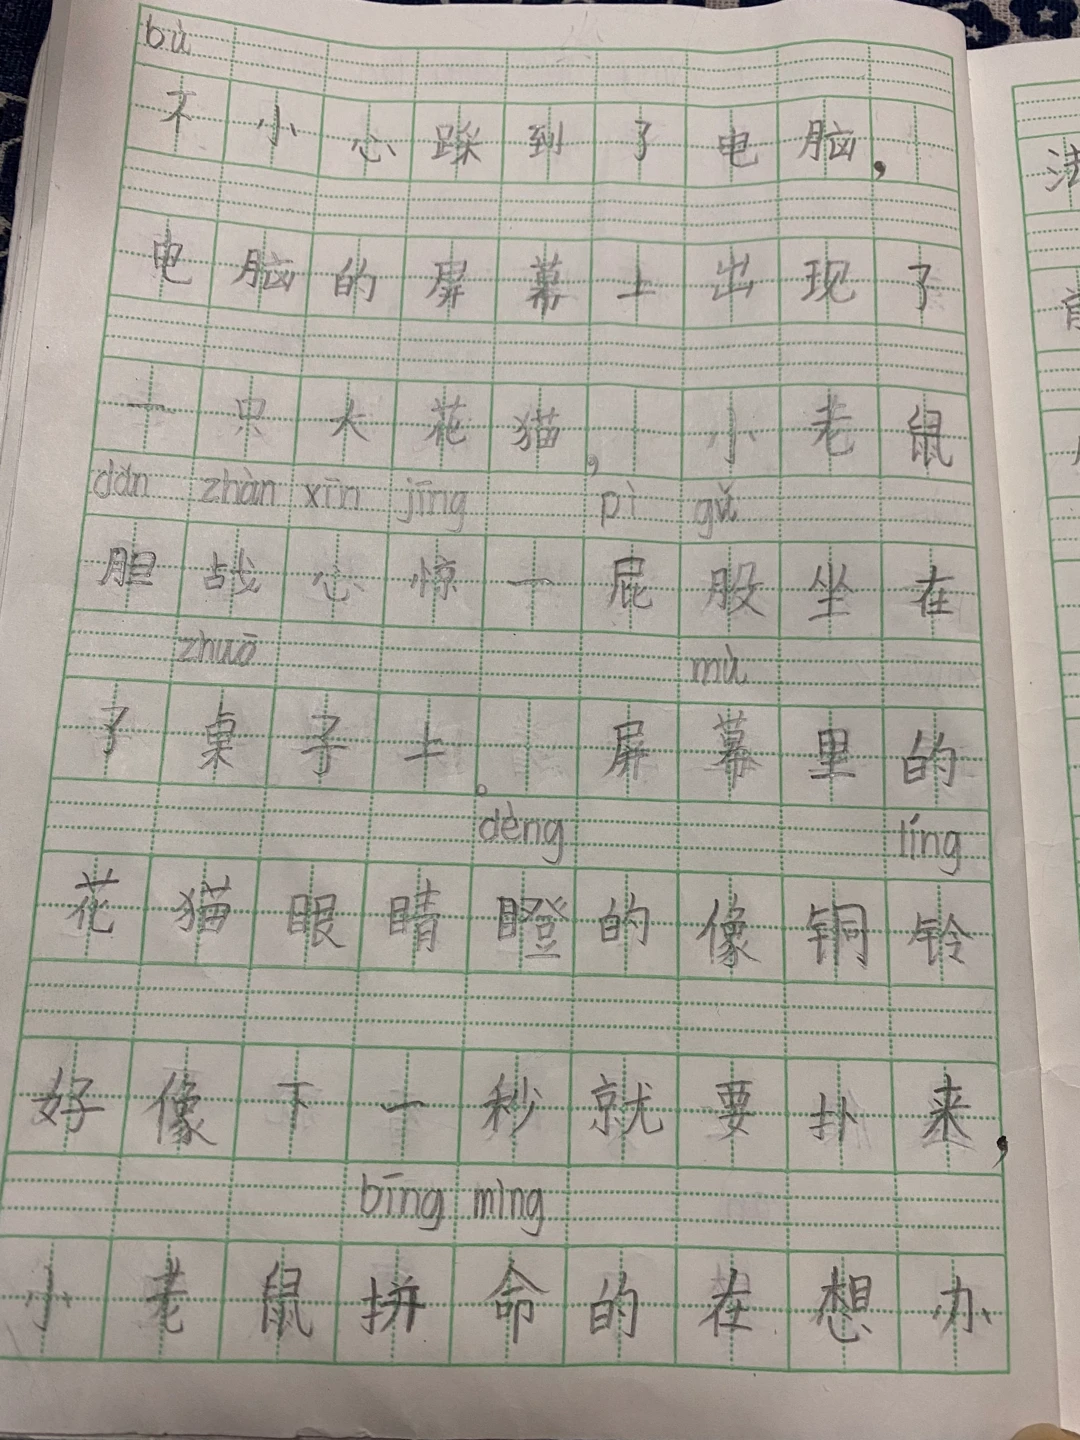 bù
不小心踩到了电脑，
电脑的屏幕上出现了
一只大花猫，小老鼠
dǎn zhàn xīn jīng pì gǔ
胆战心惊一屁股坐在
zhuō mù
了桌子上。屏幕里的
dèng líng
花猫眼睛瞪的像铜铃
好像下一秒就要扑来，
bīng mìng
小老鼠拼命的在想办
法